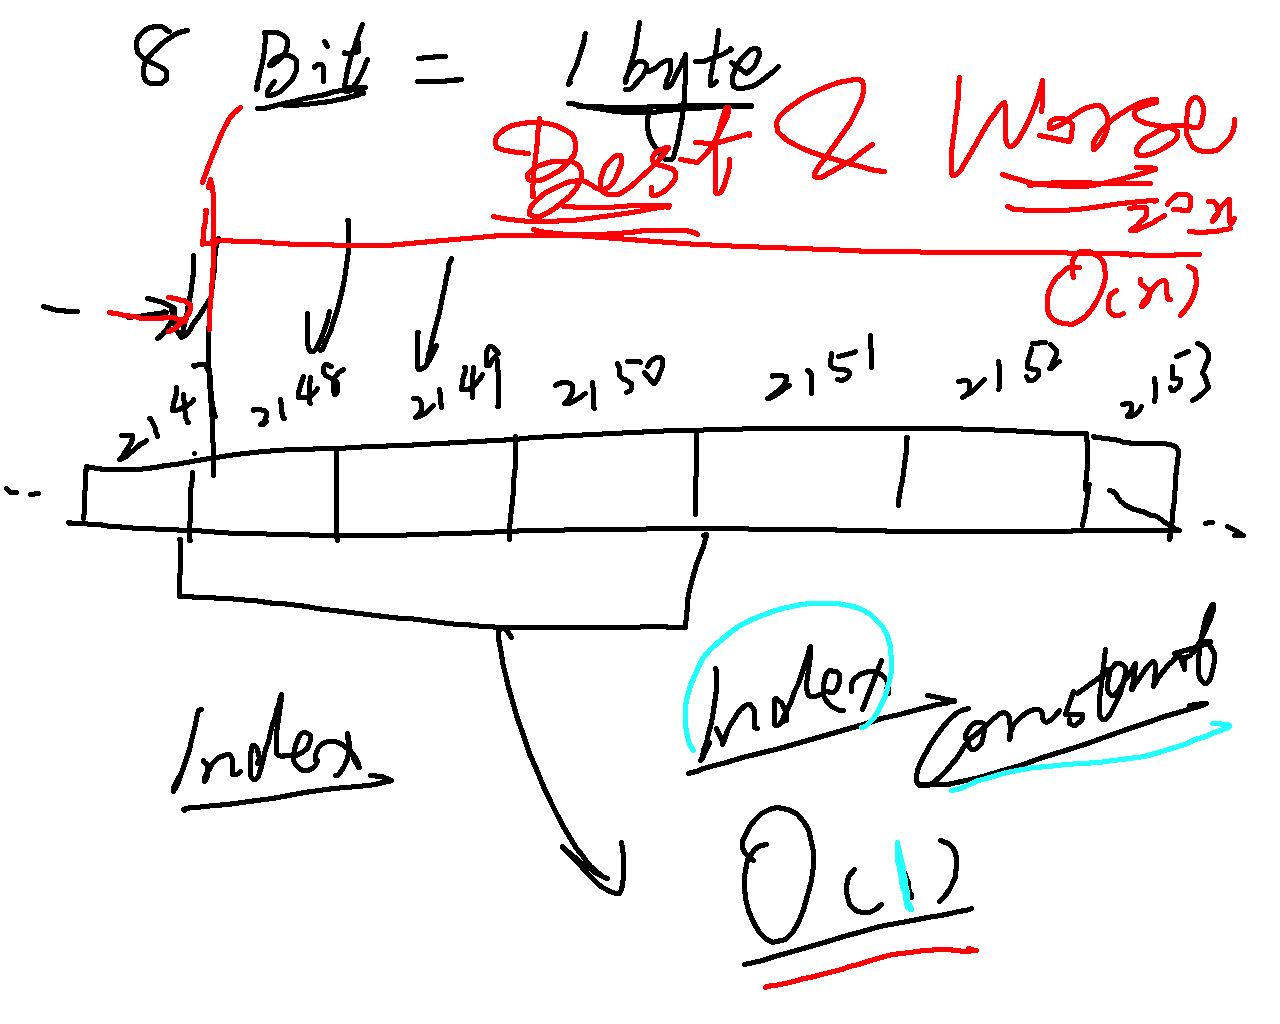 8 Bit = 1 byte
Best & Worse
20n
O(n)
2147 2148 2149 2150 2151 2152 2153
Index
Index → constant
O(1)